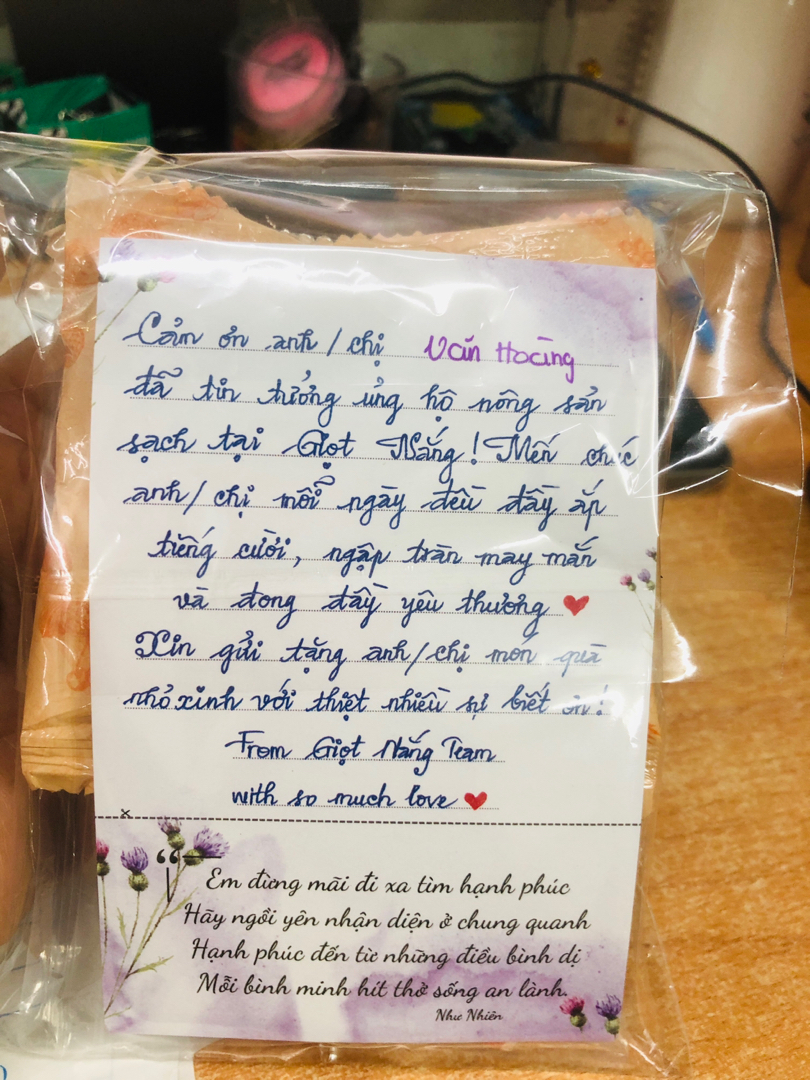 Cảm ơn anh/chị Văn Hoàng
đã tin tưởng ủng hộ nông sản
sạch tại Giọt Nắng! Mến chúc
anh/chị mỗi ngày đều đầy ắp
tiếng cười, ngập tràn may mắn
và đong đầy yêu thương ❤
Xin gửi tặng anh/chị món quà
nhỏ xinh với thiệt nhiều sự biết ơn!
From Giọt Nắng Team
with so much love ❤
“Em đừng mãi đi xa tìm hạnh phúc
Hãy ngồi yên nhận diện ở chung quanh
Hạnh phúc đến từ những điều bình dị
Mỗi bình minh hít thở sống an lành.
Như Nhiên